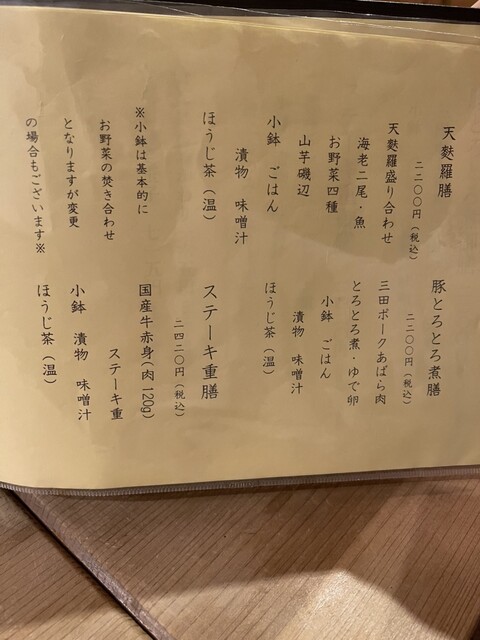 天麩羅膳
二二〇〇円(税込)
天麩羅盛り合わせ
海老二尾・魚
お野菜四種
山芋磯辺
小鉢 ごはん
漬物 味噌汁
ほうじ茶(温)
※小鉢は基本的に
お野菜の焚き合わせ
となりますが変更
の場合もございます※
豚とろとろ煮膳
二二〇〇円(税込)
三田ポークあばら肉
とろとろ煮・ゆで卵
小鉢 ごはん
漬物 味噌汁
ほうじ茶(温)
ステーキ重膳
二四二〇円(税込)
国産牛赤身(肉120g)
ステーキ重
小鉢 漬物 味噌汁
ほうじ茶(温)